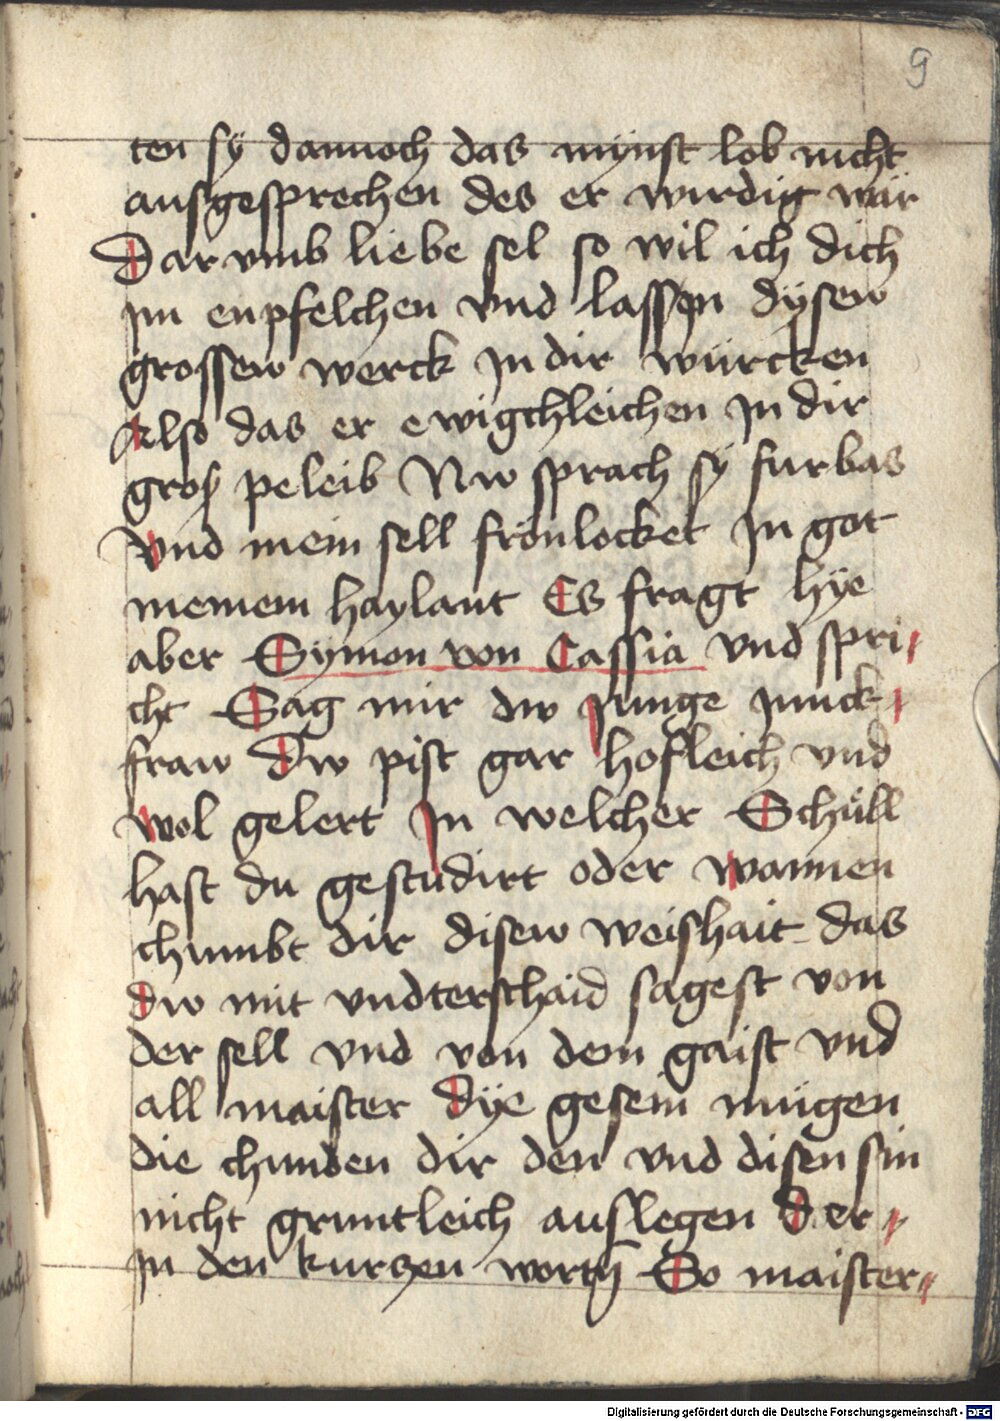 9
ten sÿ dannoch das mÿnst lob nicht
ausgesprechen des er wirdig wär
Dar vmb liebe sel so wil ich dich
im enpfelchen vnd lassen dÿsew
grossew werck In dir würcken
Also das er ewigchleichen In dir
groß peleib Nw sprach sÿ furbas
Vnd mein sell frönlocket In got
meinem haylant Es fragt hÿe
aber Sÿmon von Cassia vnd spri
cht Sag mir dw Junge Junck
fraw Dw pist gar hofleich vnd
wol gelert In welcher Schüll
hast du gestudirt oder wannen
chumbt dir disew weishait das
dw mit vndterschaid sagest von
der sell vnd von dem gaist vnd
all maister dÿe gesein mügen
die chunden dir den vnd disen sin
nicht gruntleich auslegen der
In den kurczen worten So maister
Digitalisierung gefördert durch die Deutsche Forschungsgemeinschaft - DFG